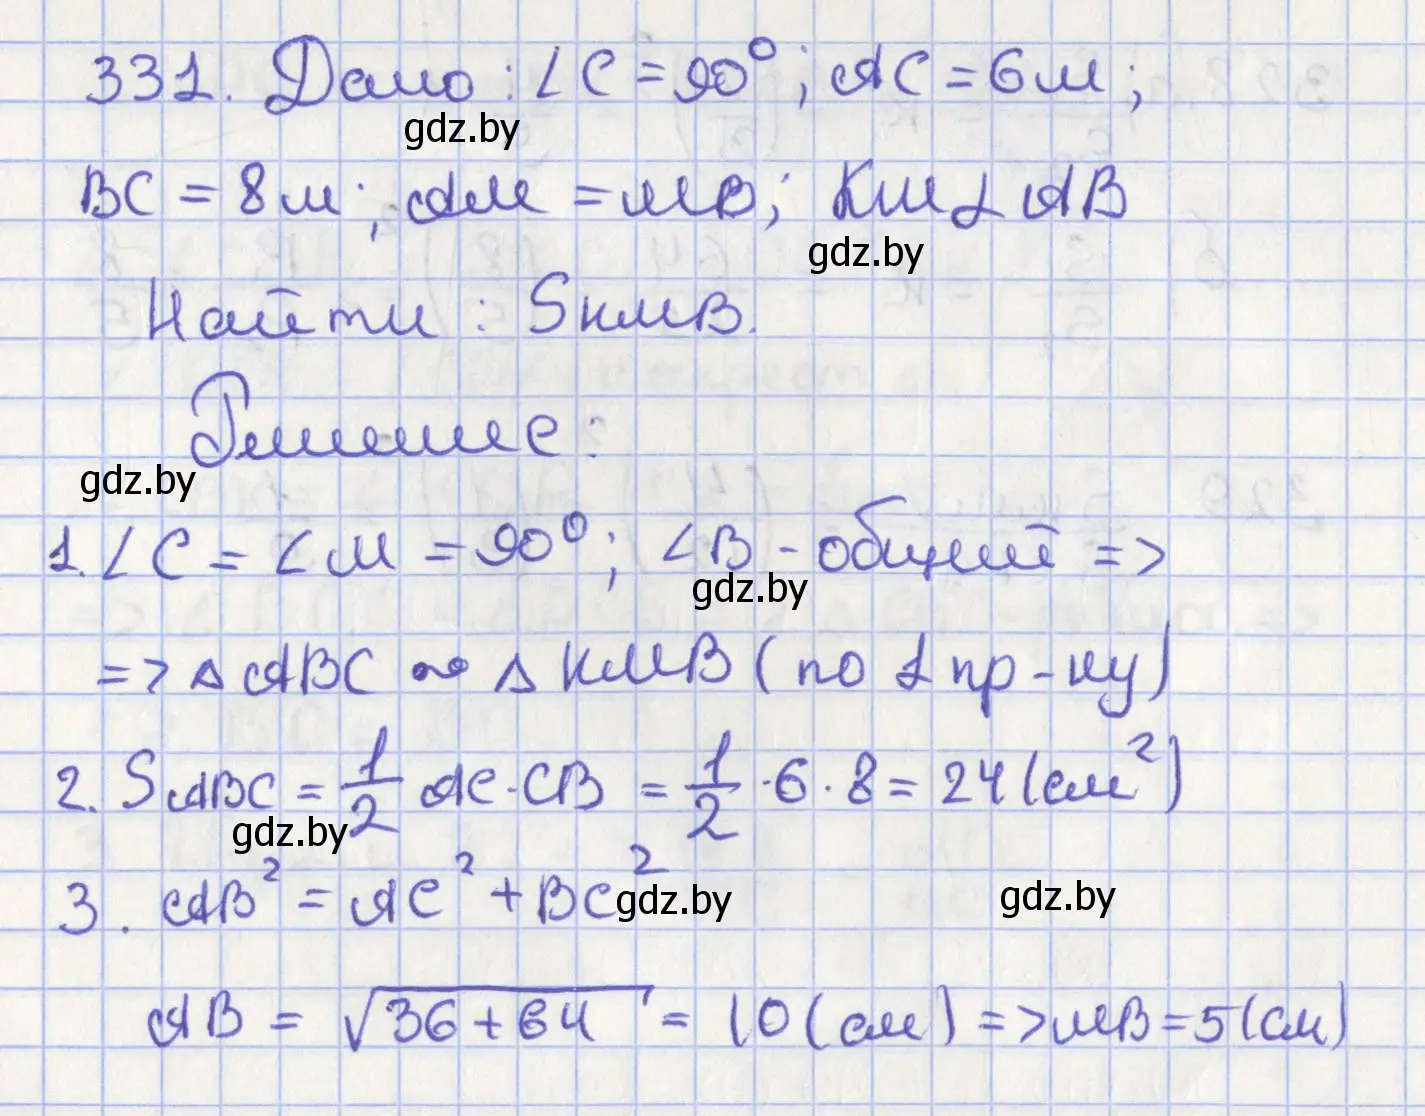 331. Дано: ∠C = 90°; AC = 6м;
gdz.by
BC = 8м; AM = MB; KM ⊥ AB
gdz.by
Найти: SKMB.
Решение:
gdz.by
1. ∠C = ∠M = 90°; ∠B - общий =>
gdz.by
=> △ABC ~ △KMB (по 1 пр-ку)
2. SABC = 1/2 AC·CB = 1/2 ·6·8 = 24 (см²)
gdz.by
3. AB² = AC² + BC²
gdz.by gdz.by
AB = √36+64 = 10 (см) => MB = 5 (см)